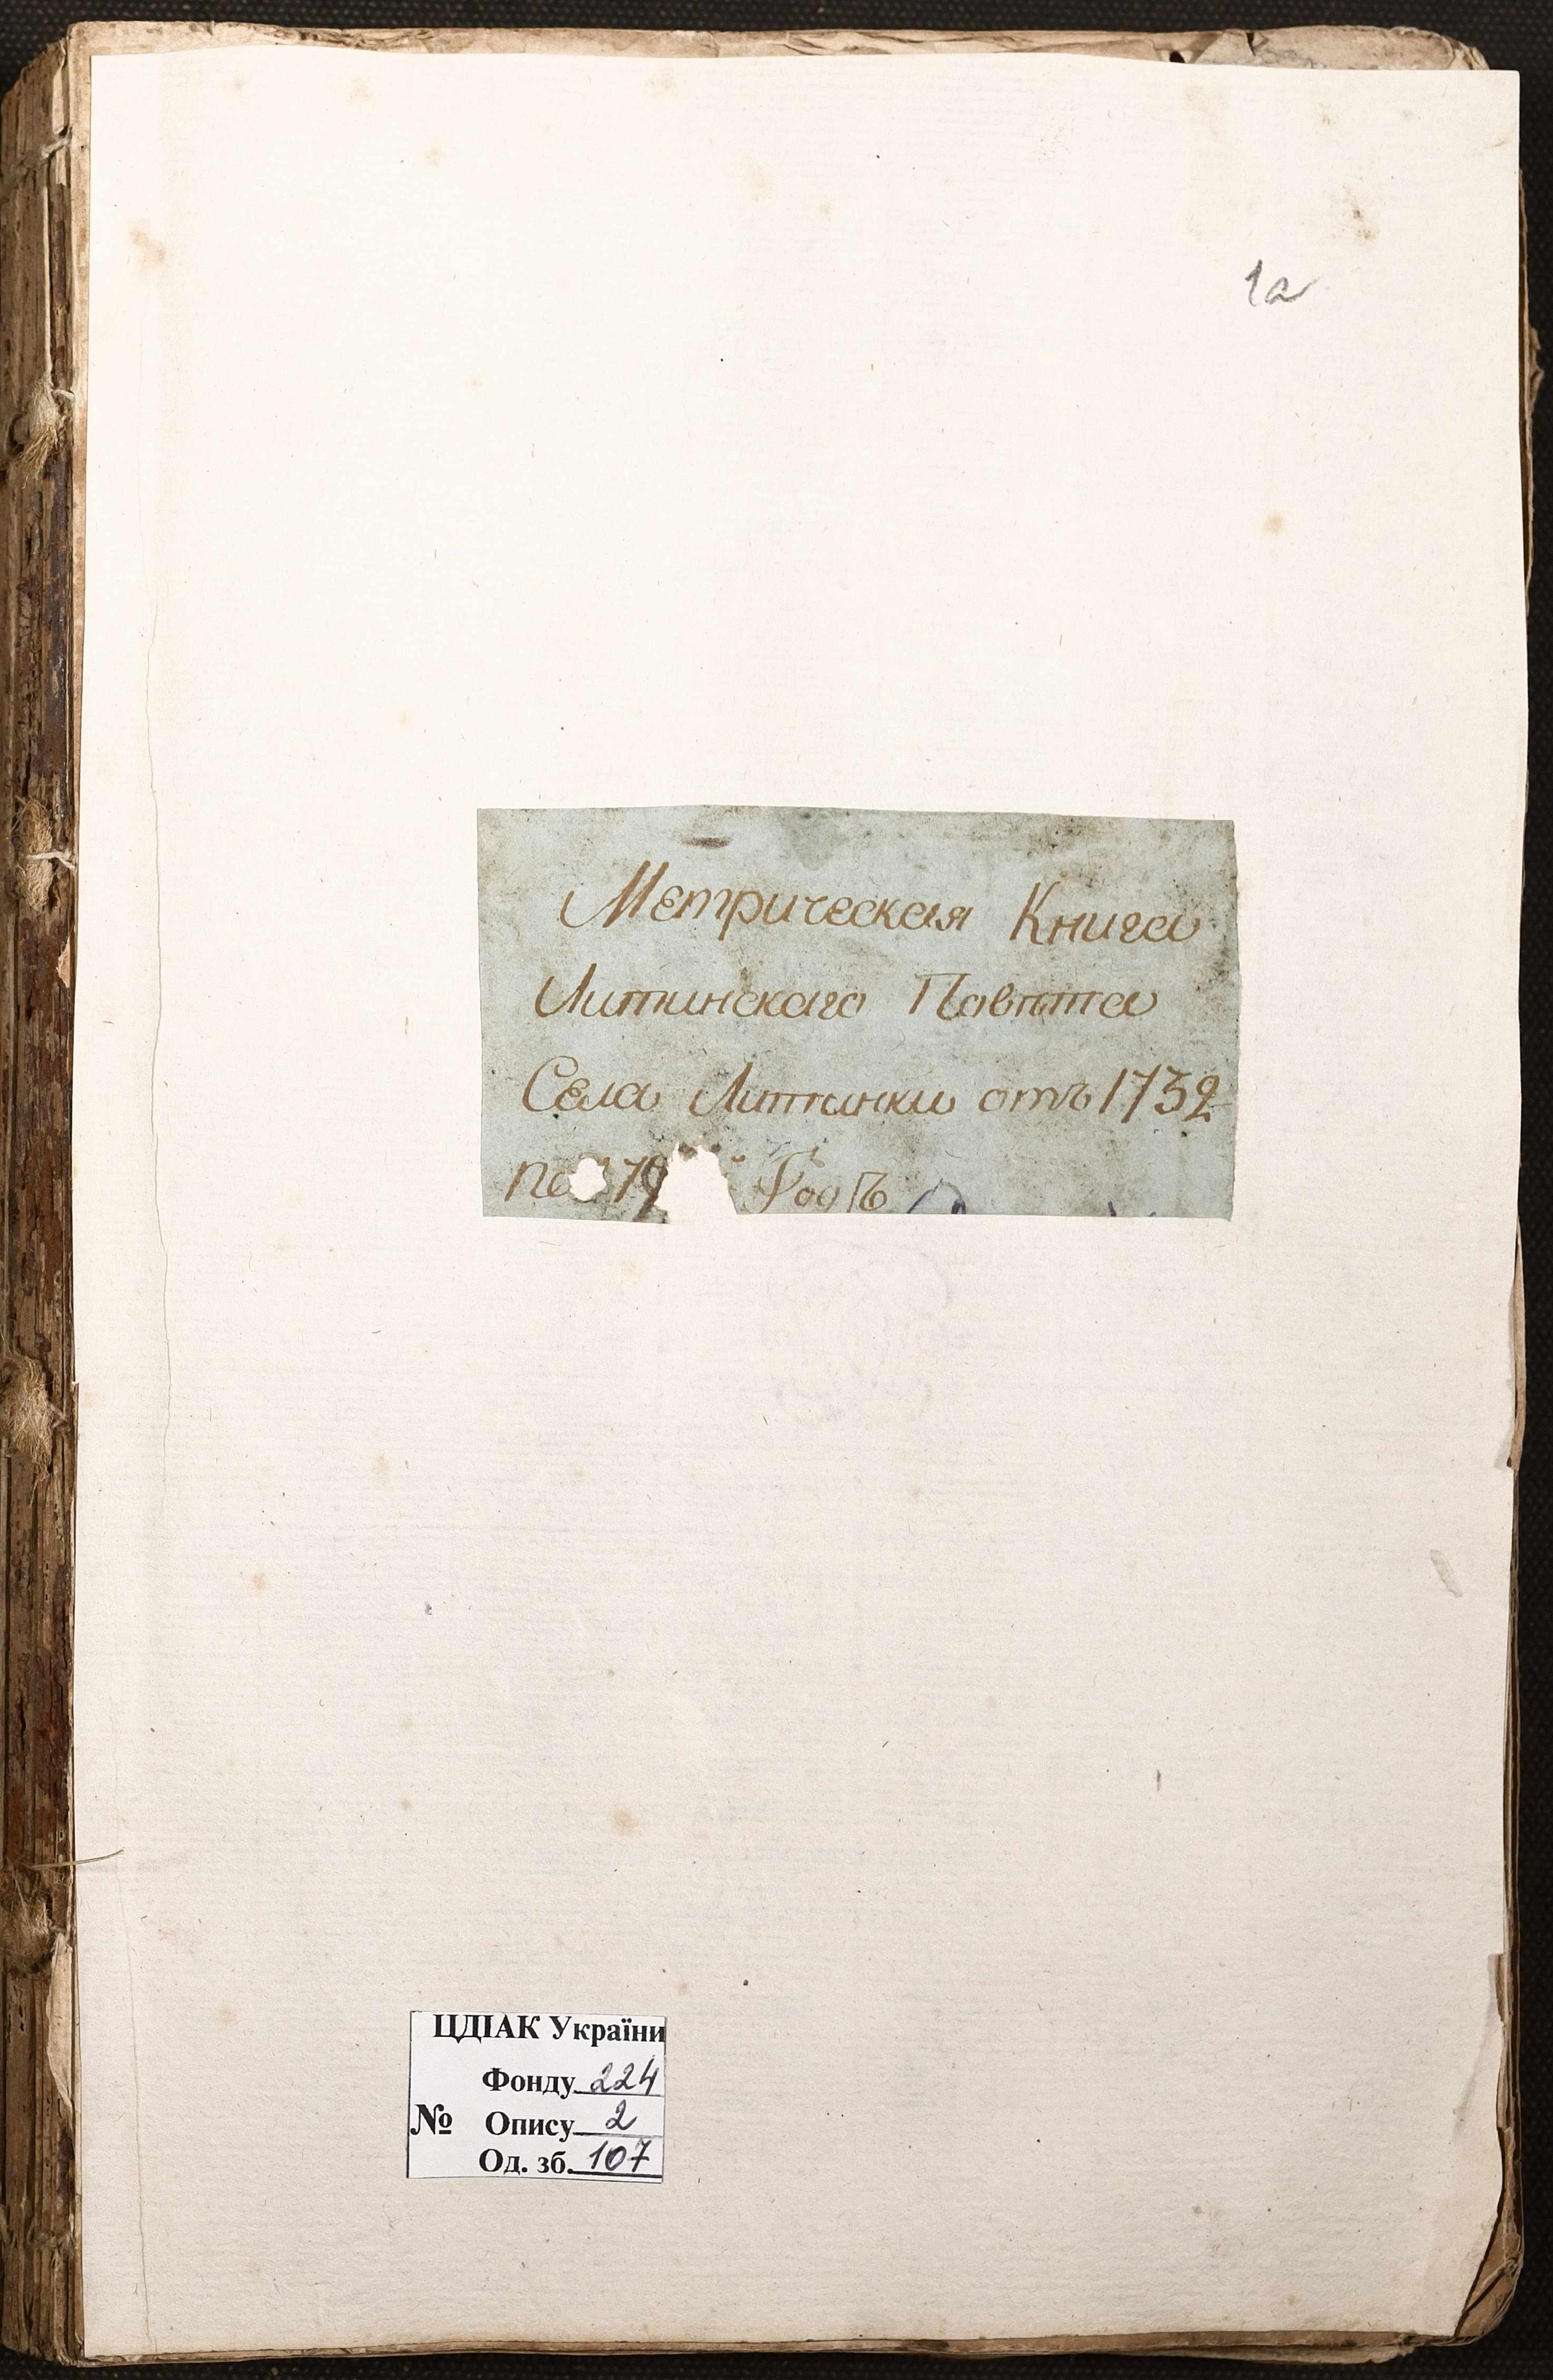 1а
Метрическая Книга
Литинскаго Повѣта
Села Литинки отъ 1732
по 179 Годъ
ЦДІАК України
Фонду 224
№ Опису 2
Од. зб. 107